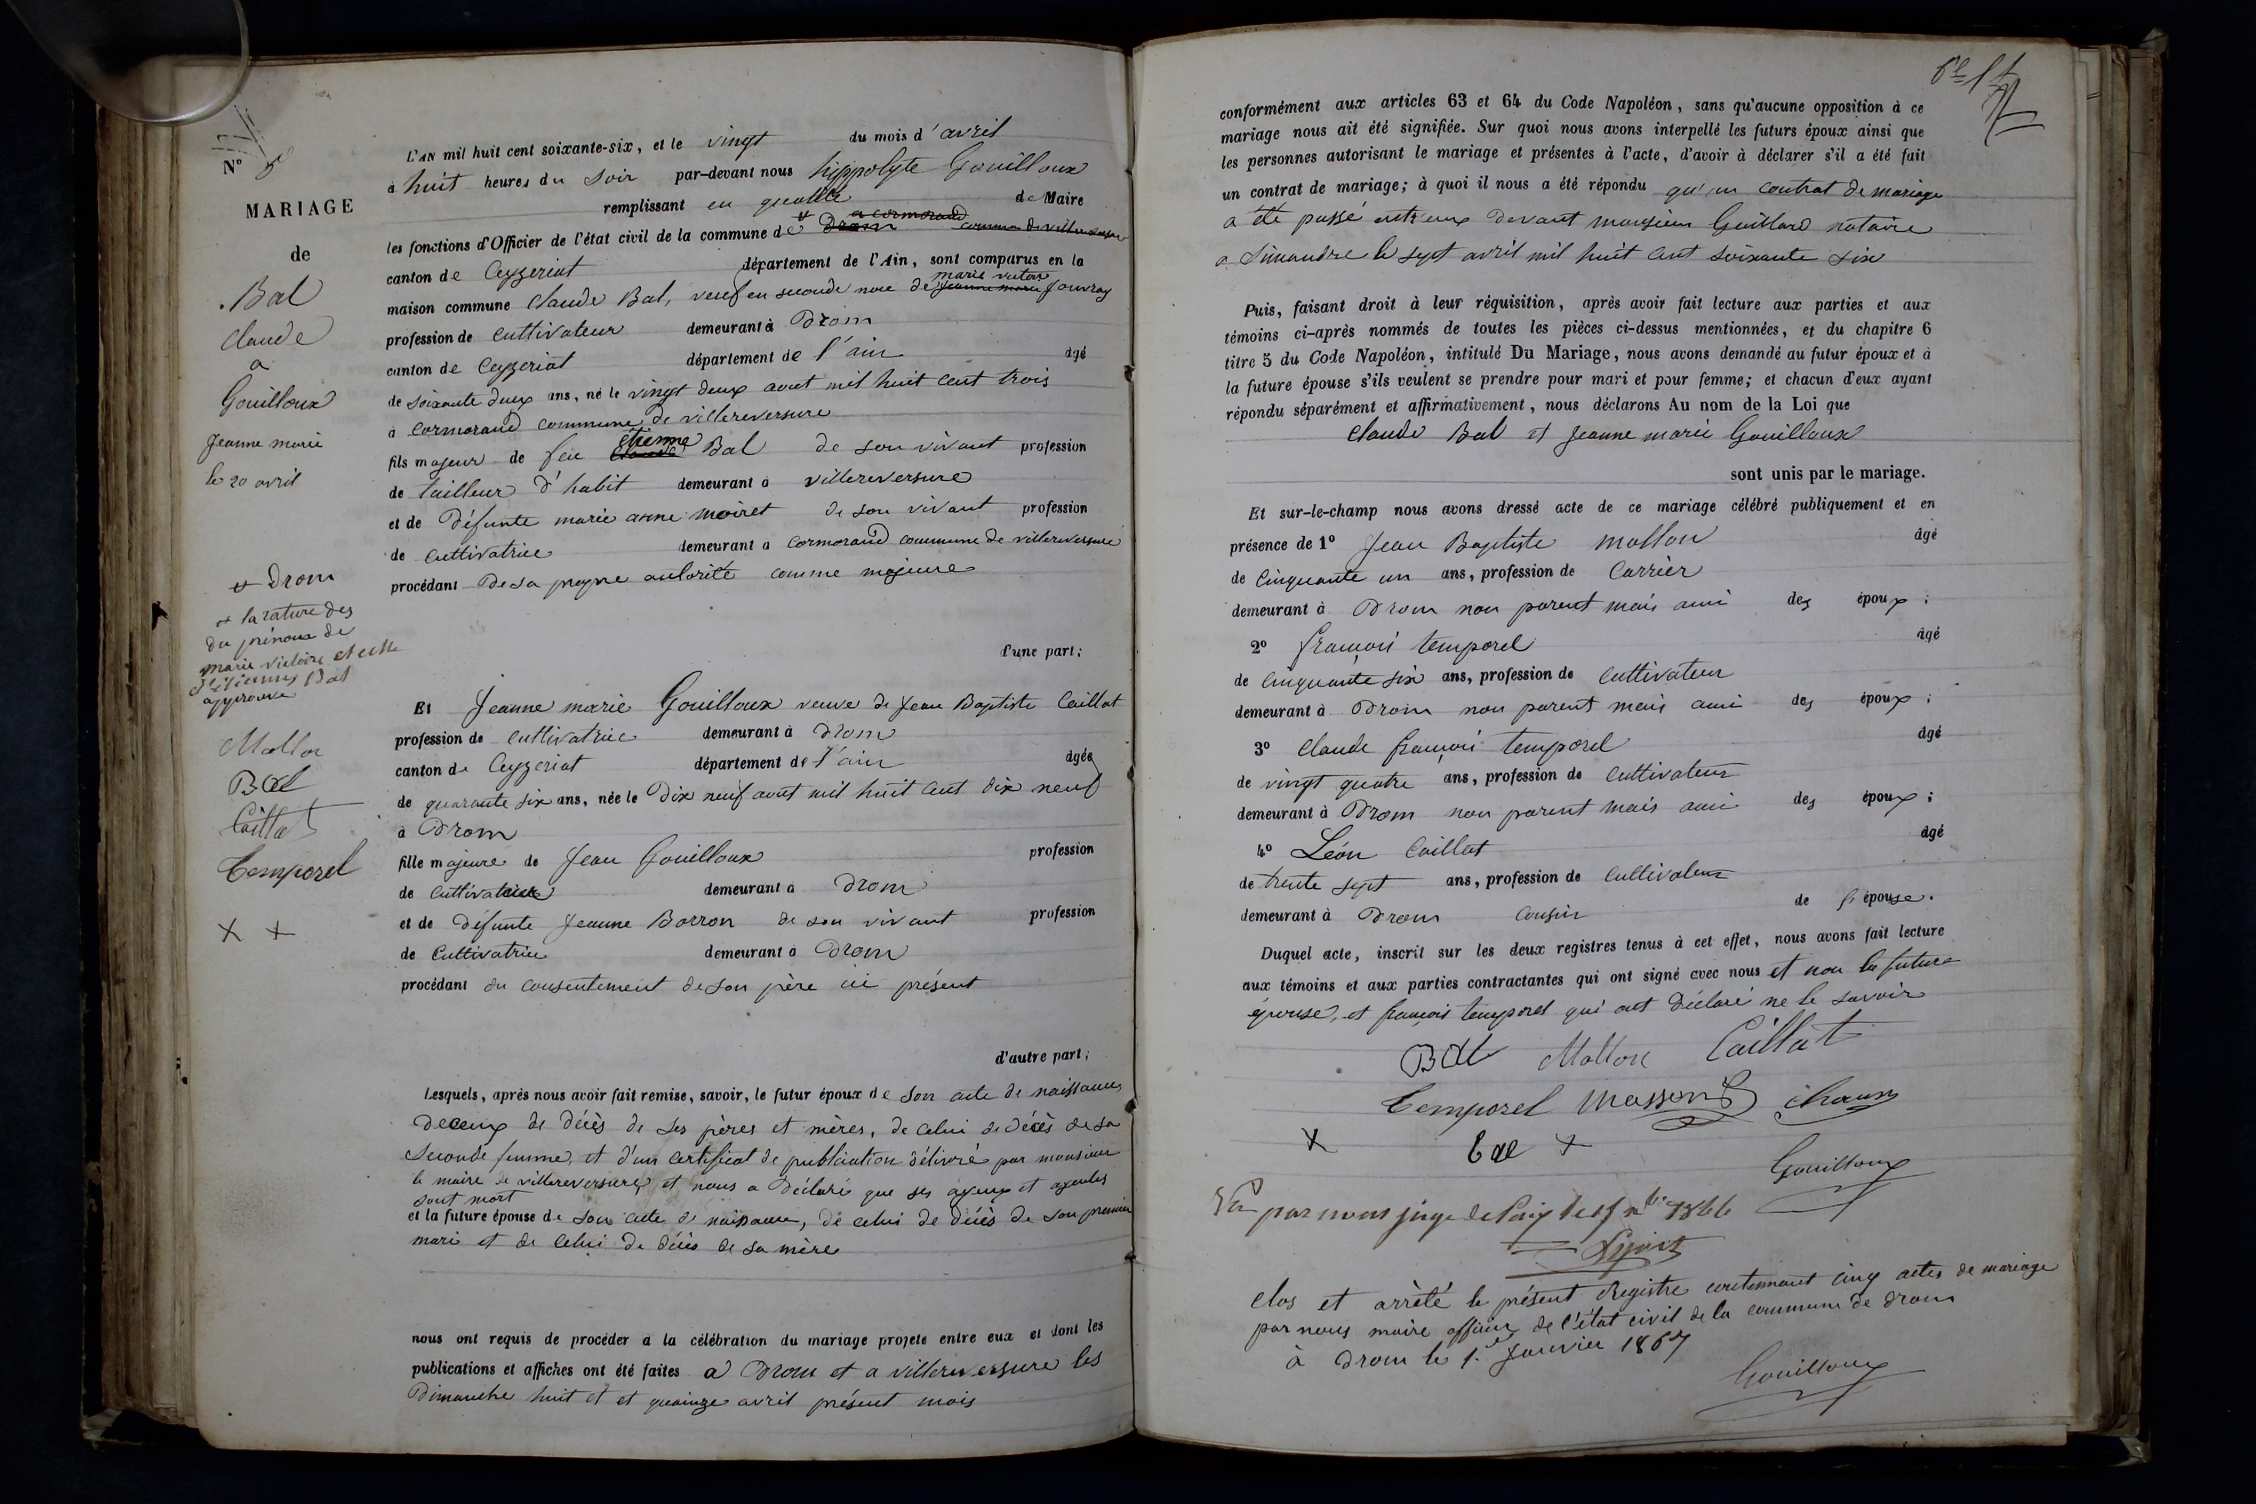 N° 5
MARIAGE
de
Bal
Claude
a
Gouilloux
Jeanne marie
le 20 avril
+ Drom
+ la rature des
du prénoux de
marie victoire et celle
d'étienne Bal
approuvé
Mollon
Bal
Caillat
Temporel
X +
L'AN mil huit cent soixante-six, et le vingt du mois d'avril
à huit heures du soir par-devant nous hippolyte Gouilloux
remplissant en qualité de Maire
les fonctions d'Officier de l'état civil de la commune de + Drom a cormorand commune de villereversure
canton de Ceyzeriat département de l'Ain, sont comparus en la
maison commune Claude Bal, veuf en seconde noce de Jeanne marie marie victoire Jouvray
profession de cultivateur demeurant à Drom
canton de Ceyzeriat département de l'ain âgé
de soixante deux ans, né le vingt deux aout mil huit cent trois
à Cormorand commune de villereversure
fils majeur de feu Claude étienne Bal de son vivant profession
de tailleur d'habit demeurant à villereversure
et de Défunte marie anne moiret de son vivant profession
de cultivatrice demeurant a Cormorand commune de villereversure
procédant De sa propre autorité comme majeure
d'une part;
Et Jeanne marie Gouilloux veuve de Jean Baptiste Caillat
profession de cultivatrice demeurant à Drom
canton de Ceyzeriat département de l'ain âgée
de quarante six ans, née le Dix neuf aout mil huit cent dix neuf
à Drom
fille majeure de Jean Gouilloux profession
de cultivateur demeurant à Drom
et de Défunte Jeanne Borron de son vivant profession
de Cultivatrice demeurant à Drom
procédant du consentement de son père ici présent
d'autre part;
Lesquels, après nous avoir fait remise, savoir, le futur époux de son acte de naissance
De ceux de décès de ses pères et mères, de celui de décès de sa
Seconde femme, et d'un certificat de publication délivré par monsieur
le maire de villereversure, et nous a Déclaré que ses ayeux et ayeules
sont mort
et la future épouse de son acte de naissance, de celui de décès de son premier
mari et de celui de décès de sa mère
nous ont requis de procéder à la célébration du mariage projeté entre eux et dont les
publications et affiches ont été faites a Drom et a villereversure les
Dimanche huit et et quainze avril présent mois
conformément aux articles 63 et 64 du Code Napoléon, sans qu'aucune opposition à ce
mariage nous ait été signifiée. Sur quoi nous avons interpellé les futurs époux ainsi que
les personnes autorisant le mariage et présentes à l'acte, d'avoir à déclarer s'il a été fait
un contrat de mariage; à quoi il nous a été répondu qu'un contrat de mariage
a été passé entr'eux Devant monsieur Guillard notaire
a Simandre le sept avril mil huit cent soixante six
Puis, faisant droit à leur réquisition, après avoir fait lecture aux parties et aux
témoins ci-après nommés de toutes les pièces ci-dessus mentionnées, et du chapitre 6
titre 5 du Code Napoléon, intitulé Du Mariage, nous avons demandé au futur époux et à
la future épouse s'ils veulent se prendre pour mari et pour femme; et chacun d'eux ayant
répondu séparément et affirmativement, nous déclarons Au nom de la Loi que
Claude Bal et Jeanne marie Gouilloux
sont unis par le mariage.
Et sur-le-champ nous avons dressé acte de ce mariage célébré publiquement et en
présence de 1° Jean Baptiste mollon âgé
de Cinquante un ans, profession de Carrier
demeurant à Drom non parent mais ami des époux;
2° françois temporel âgé
de cinquante six ans, profession de Cultivateur
demeurant à Drom non parent mais ami des époux;
3° Claude françois temporel âgé
de vingt quatre ans, profession de Cultivateur
demeurant à Drom non parent mais ami des époux;
4° Léon Caillat âgé
de trente sept ans, profession de Cultivateur
demeurant à Drom Cousin de l'épouse.
Duquel acte, inscrit sur les deux registres tenus à cet effet, nous avons fait lecture
aux témoins et aux parties contractantes qui ont signé avec nous et non la future
épouse, et françois temporel qui ont Déclaré ne le savoir
Bal Mollon Caillat
Temporel Masson
X +
Gouilloux
Vu par nous juge de Paix 1866
Clos et arrêté le présent Registre contennant cinq actes de mariage
par nous maire officier de l'état civil de la commune de drom
à drom le 1er Janvier 1867
Gouilloux